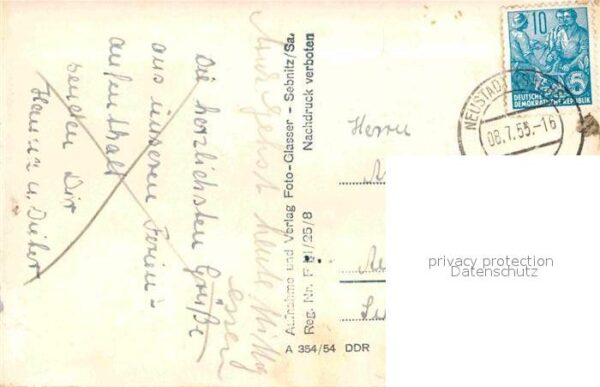 Die herzlichsten Grüße
aus unserem Ferien-
aufenthalt
senden Dir
Hanna u. Dieter
heute Mittag
essen
Aufnahme und Verlag Foto-Glasser - Sebnitz/Sa.
Reg. Nr. F 01/25/8
Nachdruck verboten
A 354/54 DDR
Herrn
10
DEUTSCHE
DEMOKRATISCHE REPUBLIK
NEUSTADT
08.7.55.-16
privacy protection
Datenschutz